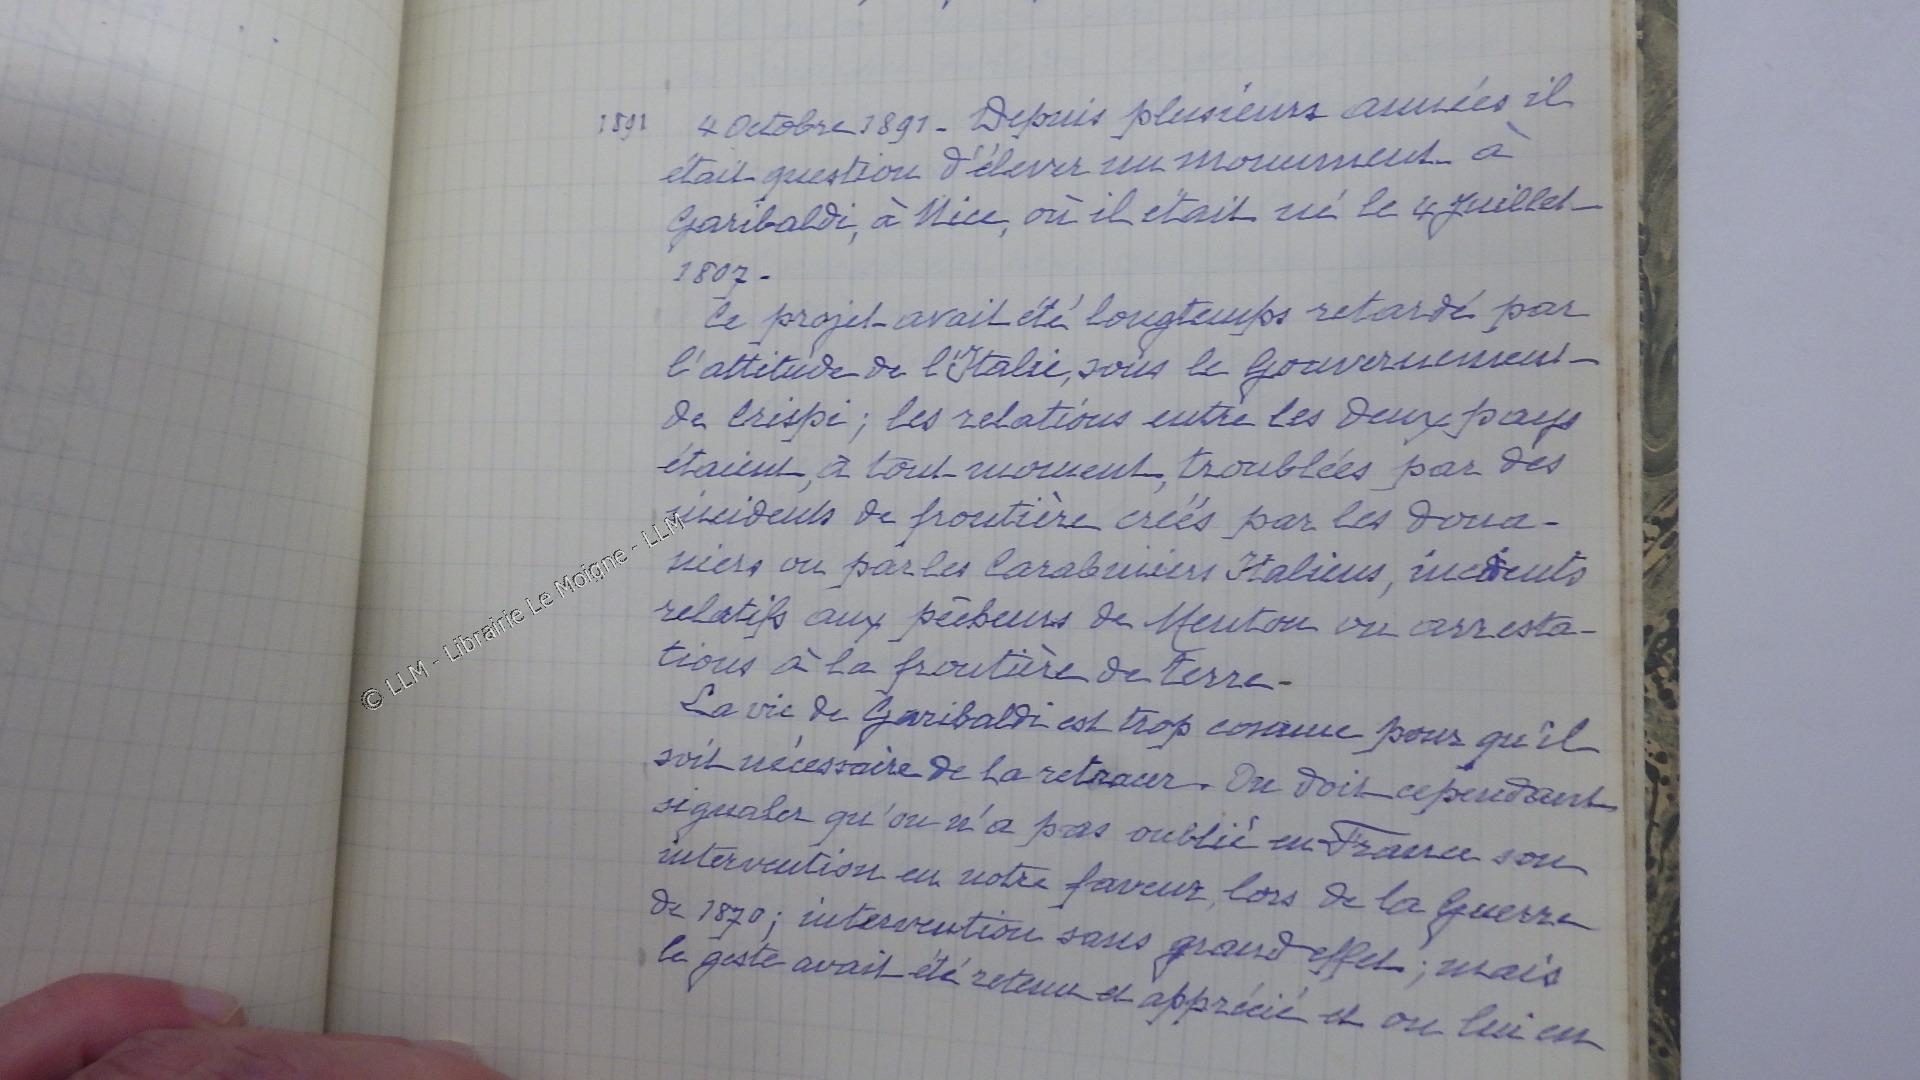 1891 4 Octobre 1891 - Depuis plusieurs années il
était question d'élever un monument à
Garibaldi, à Nice, où il était né le 4 Juillet
1807 -
Ce projet avait été longtemps retardé par
l'attitude de l'Italie, sous le Gouvernement
de Crispi ; les relations entre les deux pays
étaient, à tout moment, troublées par des
incidents de frontière créés par les doua-
niers ou par les Carabiniers Italiens, incidents
relatifs aux pêcheurs de Menton ou arresta-
tions à la frontière de terre -
La vie de Garibaldi est trop connue pour qu'il
soit nécessaire de la retracer. On doit cependant
signaler qu'on n'a pas oublié en France son
intervention en notre faveur, lors de la Guerre
de 1870 ; intervention sans grand effet ; mais
le geste avait été retenu et apprécié et on lui en
© LLM - Librairie Le Moigne - LLM